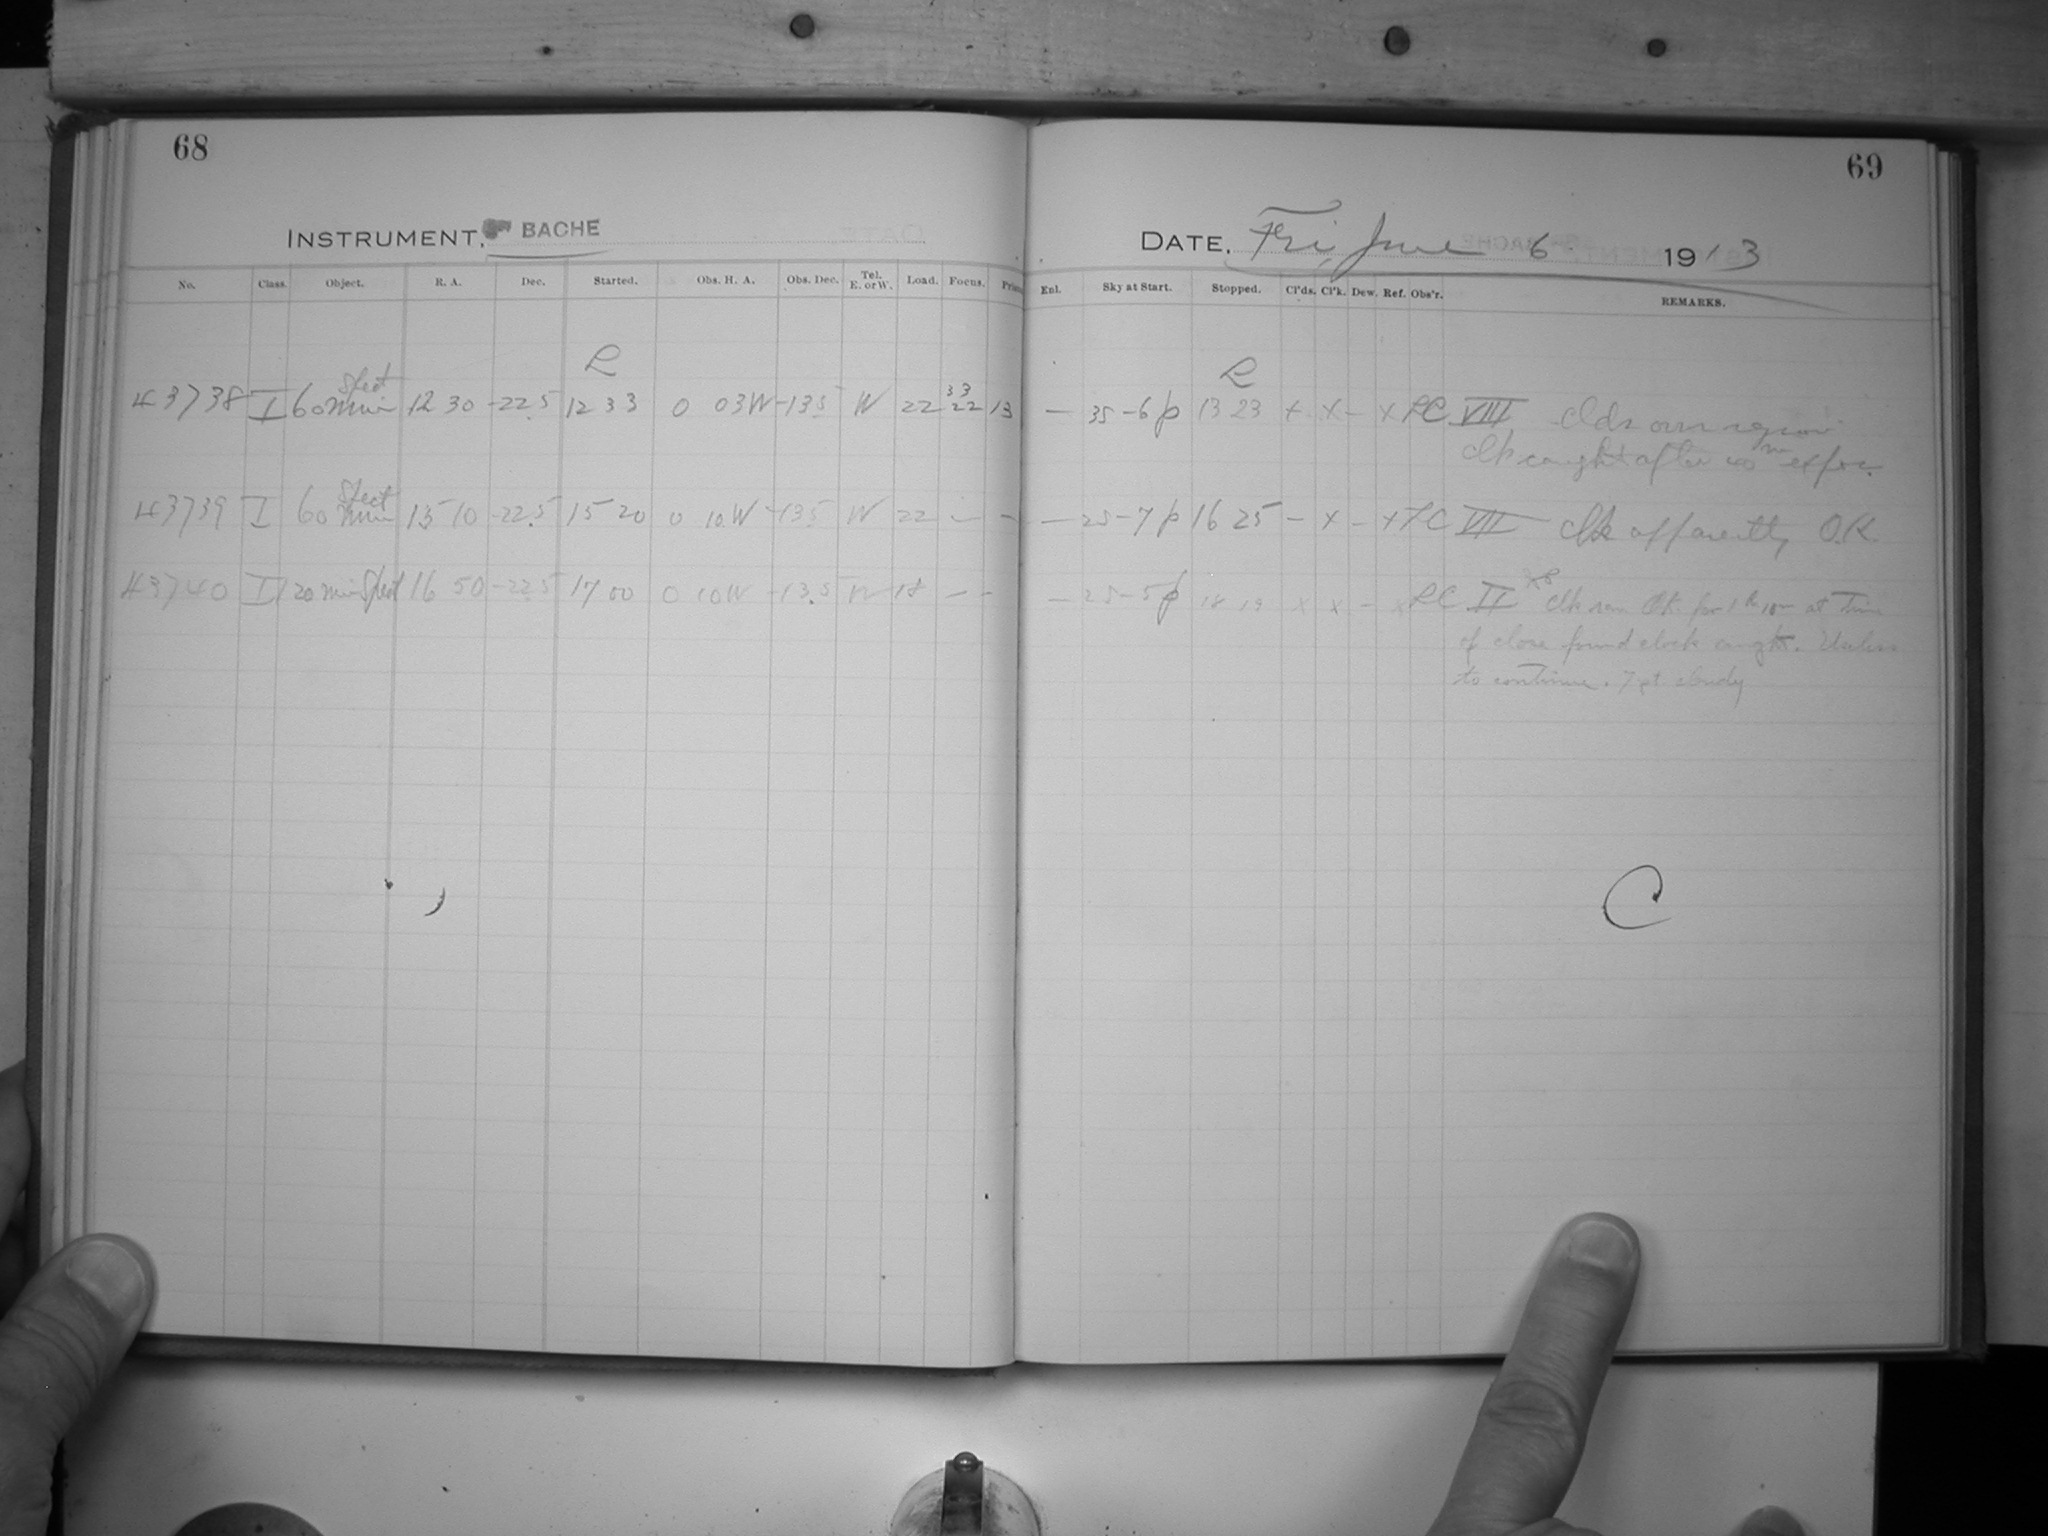 68
INSTRUMENT, BACHE
No. Class. Object. R. A. Dec. Started. Obs. H. A. Obs. Dec. Tel. E. or W. Load. Focus.
L
43738 I 60 Spect min 12 30 -22.5 12 33 0 03W -13.5 W 22 33 22 13
43739 I 60 Spect min 15 10 -22.5 15 20 0 10W -13.5 W 22 - -
43740 I 120 min Spect 16 50 -22.5 17 00 0 10W -13.5 W 18 - -
69
DATE, Fri, June 6 1913
Enl. Sky at Start. Stopped. Cl'ds. Cl'k. Dew. Ref. Obs'r. REMARKS.
L
- 35-6p 13 23 x x - x LC VIII Clds over region
Clk caught after 40m expos.
- 25-7p 16 25 - x - x LC VII Clk apparently O.K.
- 25-5p 18 19 x x - x LC II Clk ran OK for 1h 10m at time
of close found clock caught. Useless
to continue. 7 pt cloudy
C